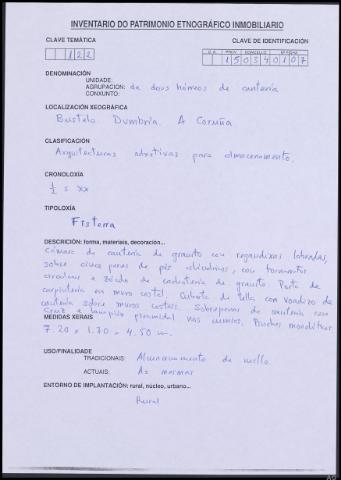 INVENTARIO DO PATRIMONIO ETNOGRÁFICO INMOBILIARIO
CLAVE TEMÁTICA
CLAVE DE IDENTIFICACIÓN
C.A. PROV. CONCELLO Nº FICHA
122
150340107
DENOMINACIÓN
UNIDADE:
AGRUPACION: de dous hórreos de cantería
CONXUNTO:
LOCALIZACIÓN XEOGRÁFICA
Bustelo. Dumbría. A Coruña
CLASIFICACIÓN
Arquitecturas adxetivas para almacenamento.
CRONOLOXÍA
1/2 s XX
TIPOLOXÍA
Fisterra
DESCRICIÓN: forma, materiais, decoración...
Cámara de cantería de granito con regandixas lateradas,
sobre cinco pares de pés cilíndricos, con tornarratos
circulares e zócalo de cachotería de granito. Porta de
carpintería en muro costal. Cuberta de tella con voadizo de
cantería sobre muros costais. Sobrepenas de cantería con
cruz e lampión piramidal nas cumios. monolíticos
MEDIDAS XERAIS
7.20 x 1.70 x 4.50 m.
USO/FINALIDADE
TRADICIONAIS: Almacenamento de millo
ACTUAIS: As mesmas
ENTORNO DE IMPLANTACIÓN: rural, núcleo, urbano...
Rural